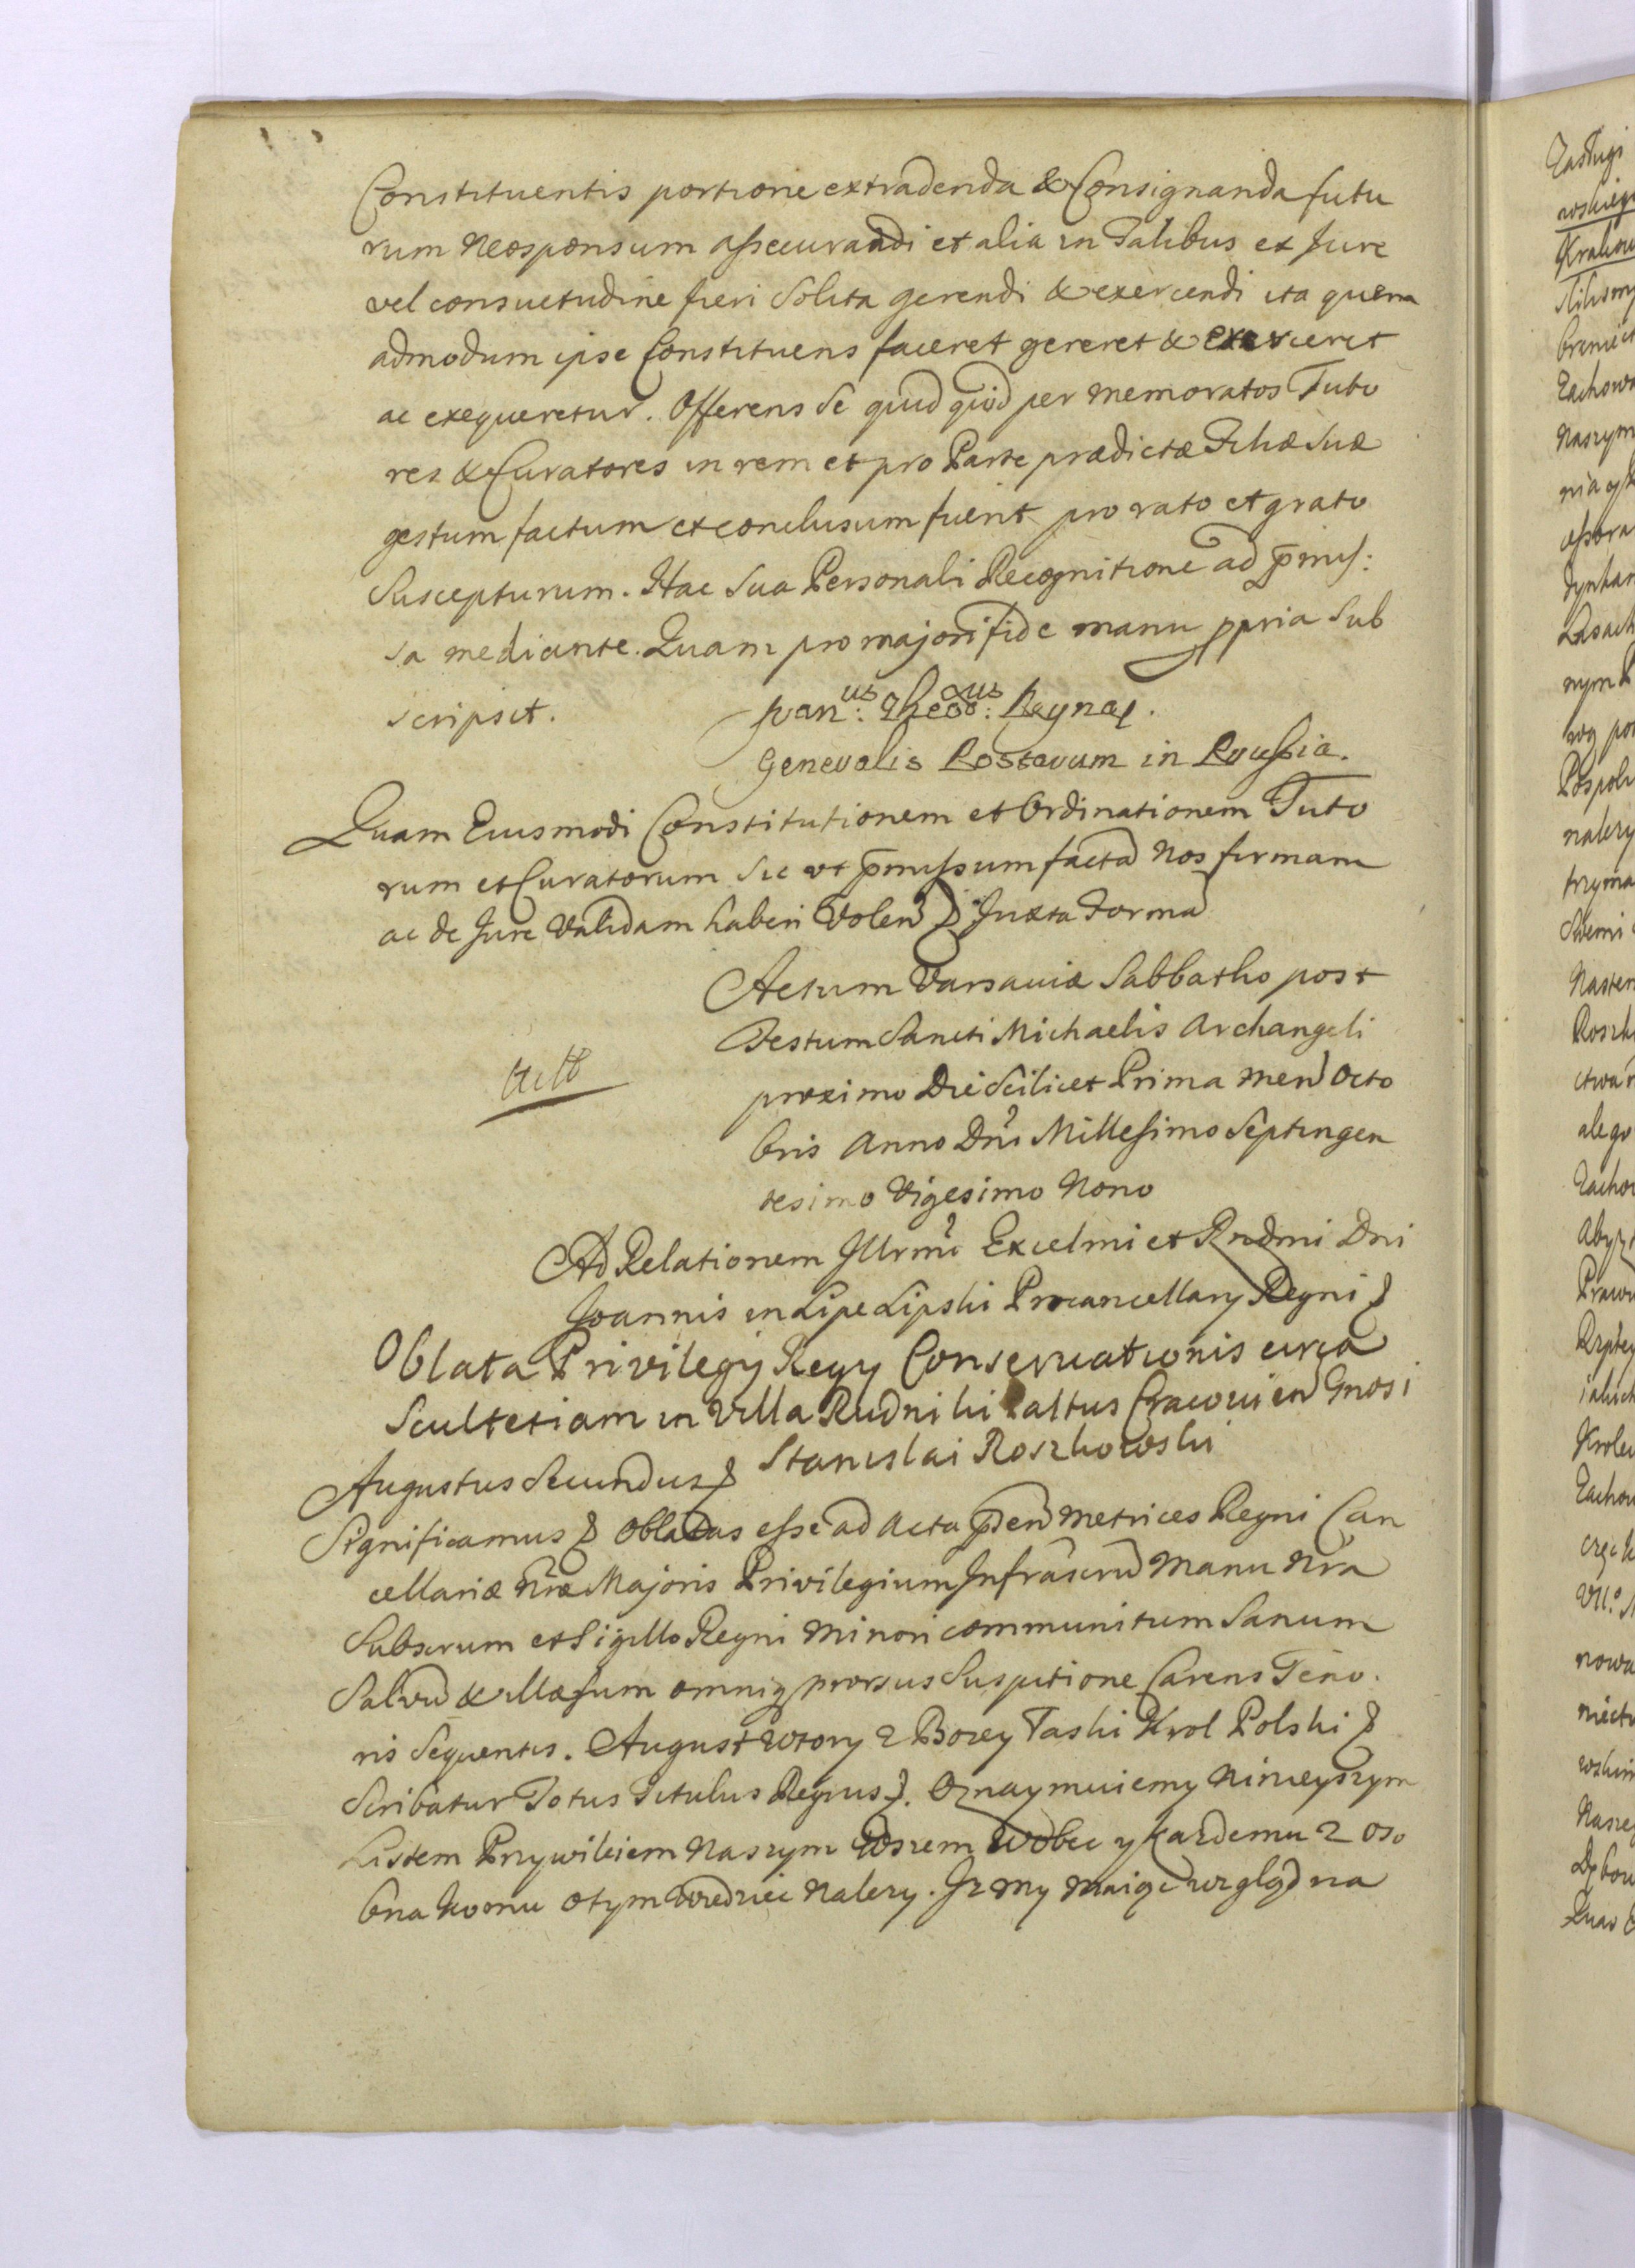 Constituentis portione extradenda & Consignanda futu
rum Neosponsum assecurandi et alia in Talibus ex Jure
vel consuetudine fieri Solita gerendi & exercendi ita quem
admodum ipse Constituens faceret gereret & exerceret
ac exequeretur. Offerens Se quid quid per memoratos Tuto
res & Curatores in rem et pro Parte prædictæ Filiæ Suæ
gestum factum et conclusum fuerit pro rato et grato
Suscepturum. Hac Sua Personali Recognitione ad p̄mis:
sa mediante. Quam pro majori fide manu ppria Sub
scripsit.
Generalis Postarum in Prussia.
Quam Eiusmodi Constitutionem et Ordinationem Tuto
rum et Curatorum Sic ut p̄missum factã Nos firmam
ac de Jure Validam haberi Volen Juxta Formã
Actum Varsaviæ Sabbatho post
Festum Sancti Michaelis Archangeli
proximo Die Scilicet Prima Men Octo
bris Anno Dni Millesimo Septingen
tesimo Vigesimo Nono
Ad Relationem Illrmi Excelmi et Rndmi Dni
Joannis in Lipe Lipski Procancellary Regni
Oblata Privilegy Regy Conservationis circa
Scultetiam in Villa Rudniki Paltus Cracovien Gnosi
Stanislai Roszkowski
Augustus Secundus
Significamus Oblatas esse ad Acta p̄en Metrices Regni Can
cellariæ Nræ Majoris Privilegium Infrascrū Manu Nra
Subscrum et Sigillo Regni Minori communitum Sanum
Salvū & illæsum omniq prorsus Suspitione Carens Teno.
ris Sequentis. August Wtory z Bozey Taski Krol Polski
Scribatur Totus Titulus Regius. Oznaymuiemy Ninieyszym
Listem Przywileiem Naszym Wszem Wobec y Kazdemu z oso
bna komu o tym wiedziec Nalezy. Jz My Maiąc wzgląd na